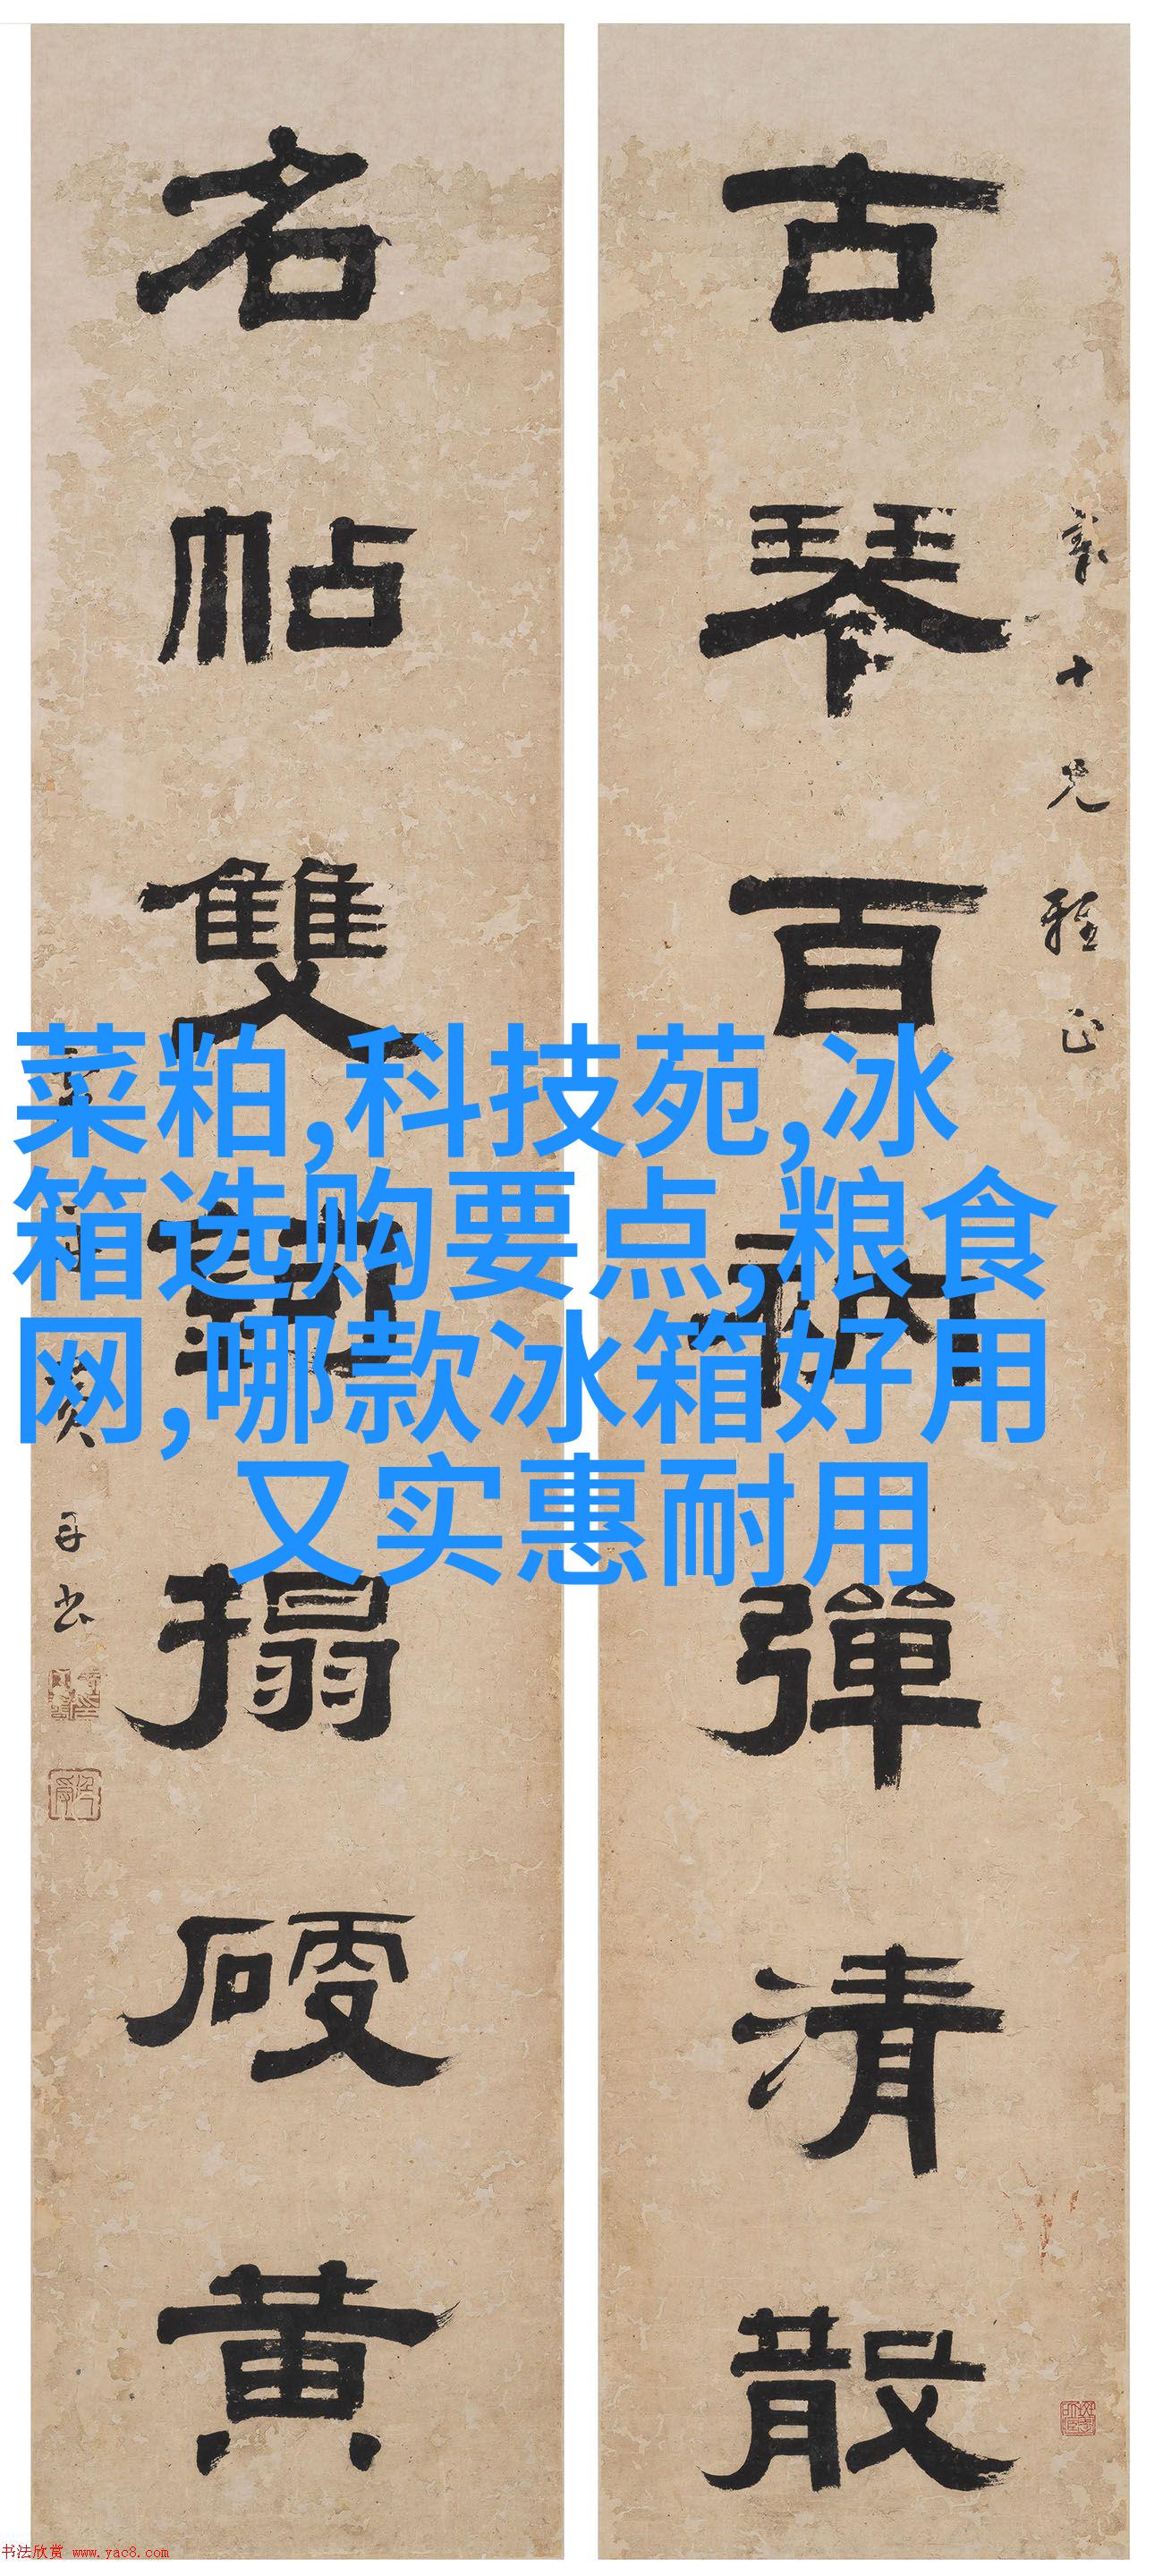 古琴百衲彈清散
名帖雙鉤搨硬黄
十兄雅正
菜粕,科技苑,冰
箱选购要点,粮食
网,哪款冰箱好用
又实惠耐用
书法欣赏 www.yac8.com